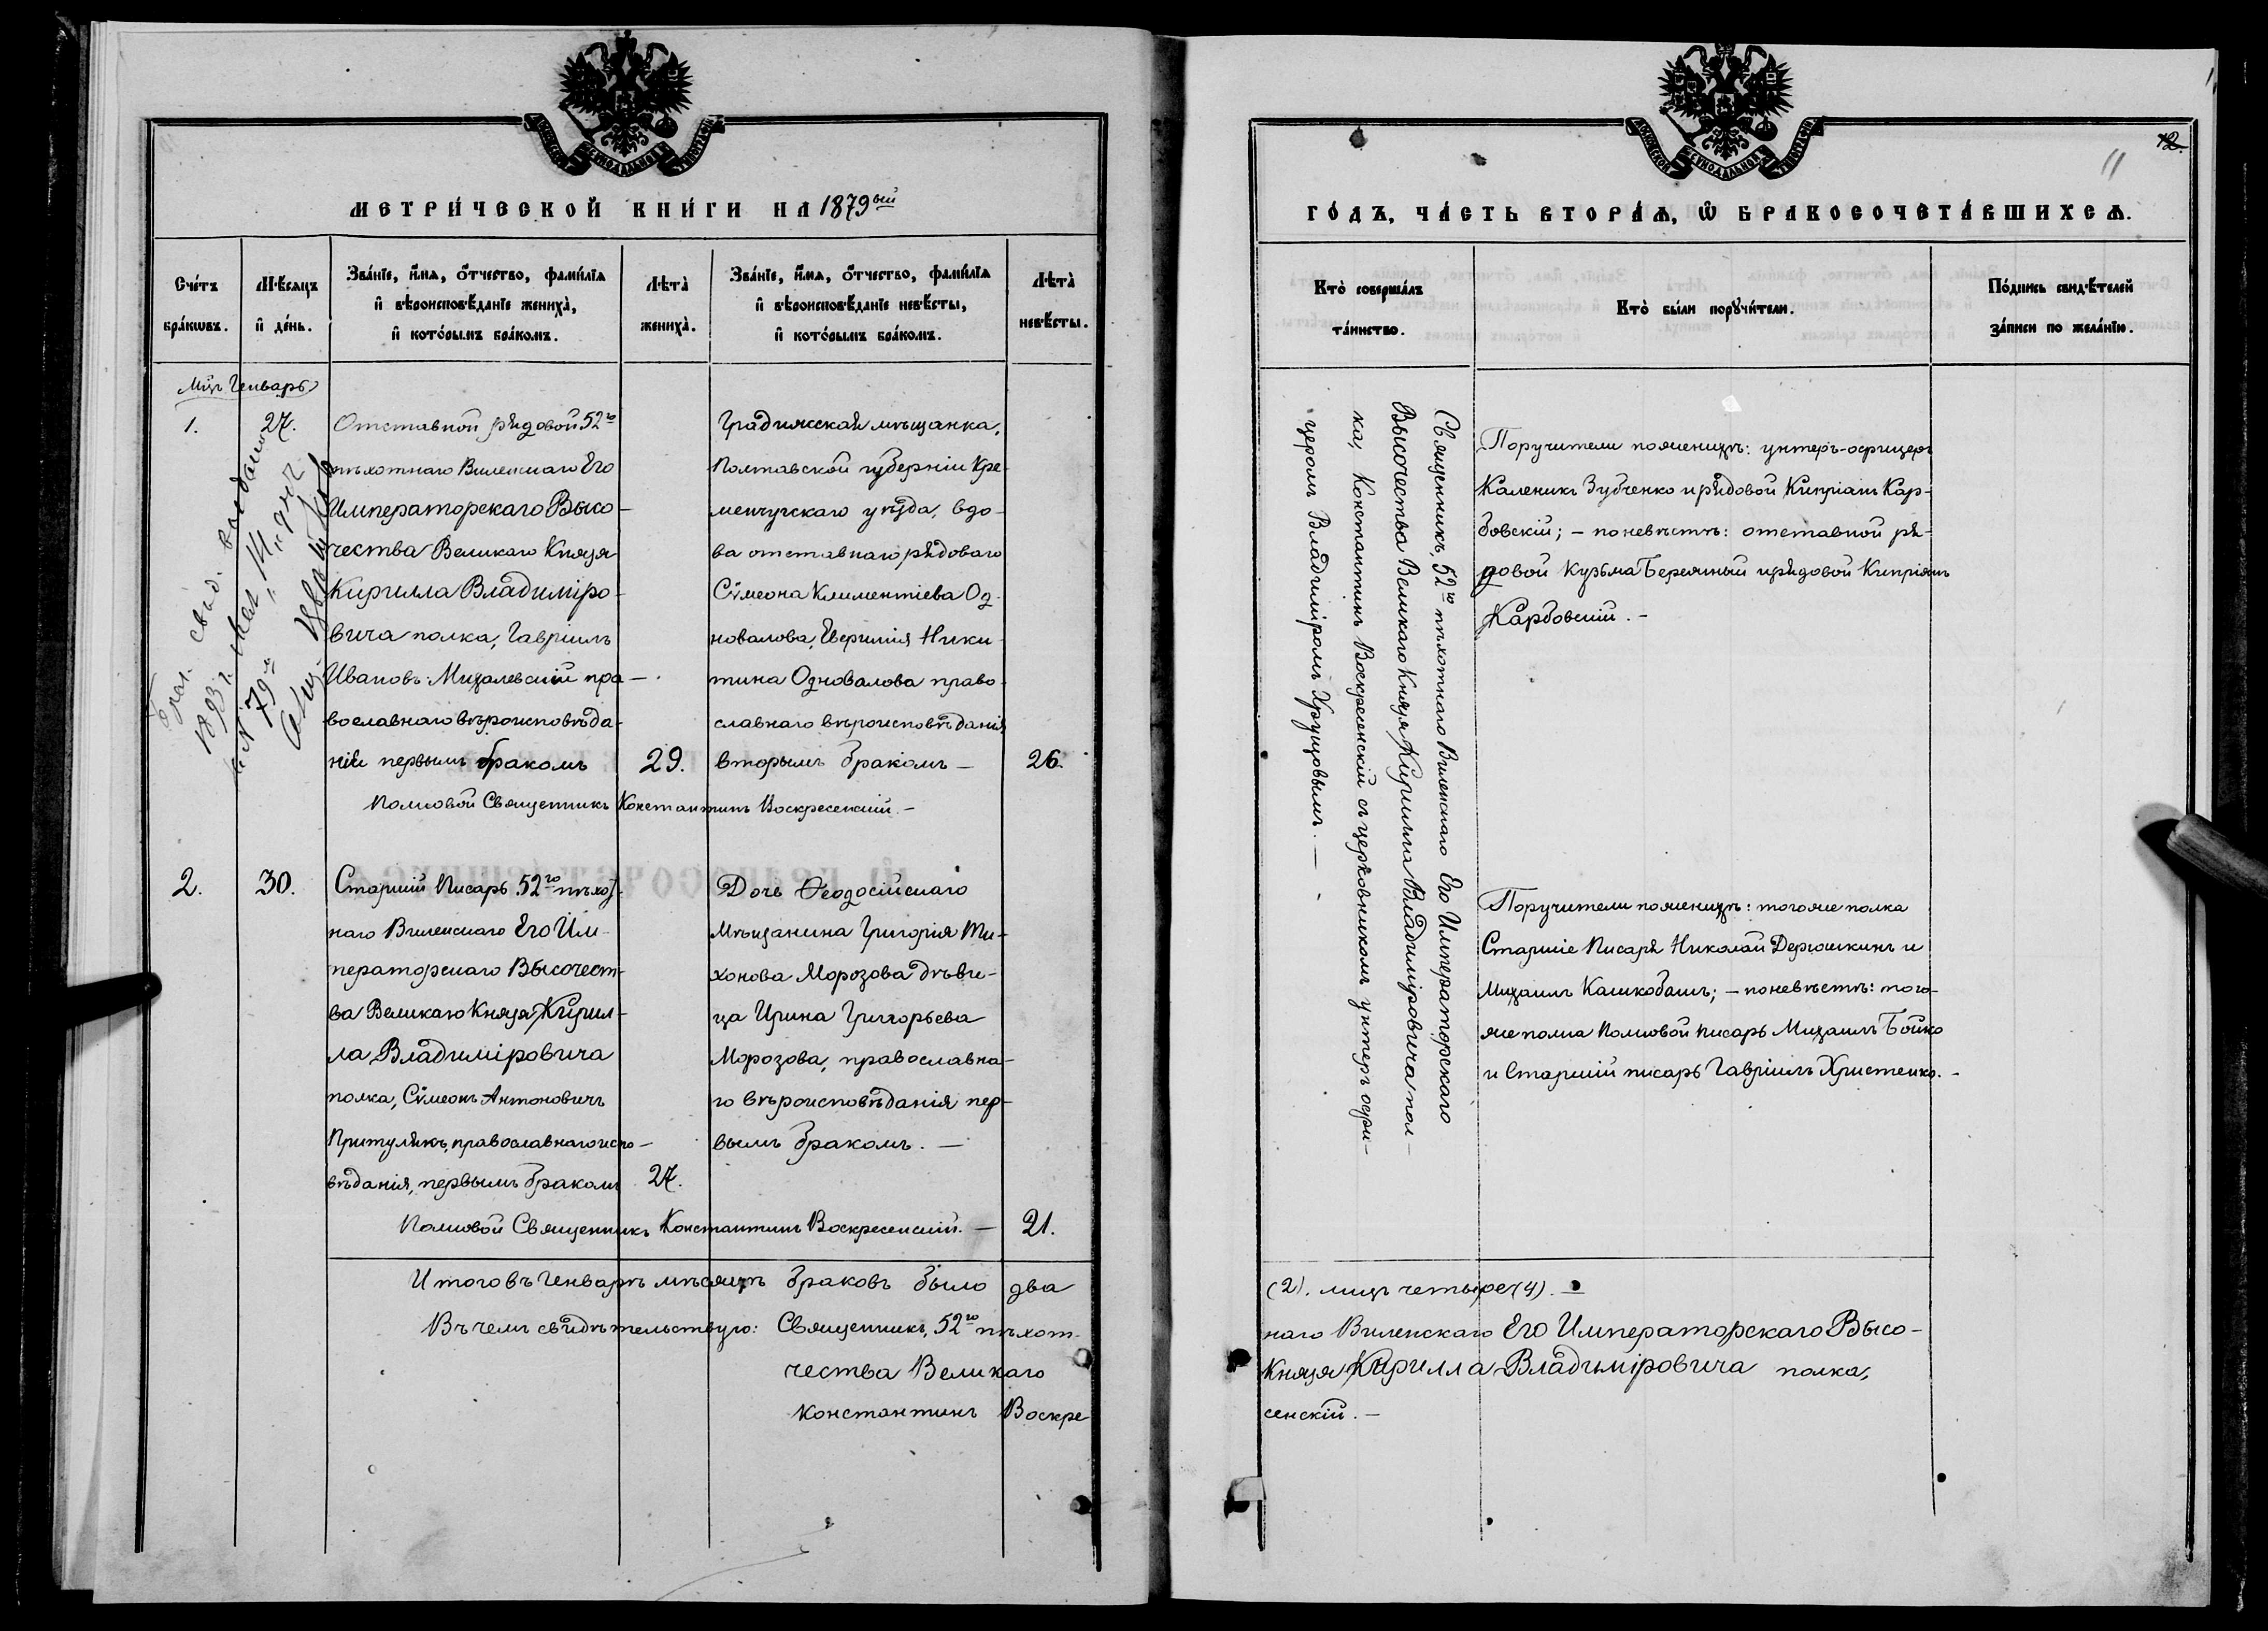 МЕТРИЧЕСКОЙ КНИГИ НА 1879ый
Счетъ браковъ.
Мѣсяцъ и день.
Званіе, имя, отчество, фамилія
и вѣроисповѣданіе жениха,
и которымъ бракомъ.
Лѣта
жениха.
Званіе, имя, отчество, фамилія
и вѣроисповѣданіе невѣсты,
и которымъ бракомъ.
Лѣта
невѣсты.
Мцъ Генварь
1.
27.
Отставной рядовой 52го
пѣхотнаго Виленскаго Его
Императорскаго Высо-
чества Великаго Князя
Кирилла Владиміро-
вича полка, Гавріилъ
Ивановъ Михалевскій пра-
вославнаго вѣроисповѣда-
нія первымъ бракомъ
29.
Градижская мѣщанка,
Полтавской губерніи Кре-
менчугскаго уѣзда, вдо-
ва отставнаго рядоваго
Сѵмеона Климентіева Од-
новалова, Евфимія Ники-
тина Одновалова право-
славнаго вѣроисповѣданія
вторымъ бракомъ —
26.
Полковой Священникъ Константинъ Воскресенскій. —
Брач. свид. выдано
1893 г. Мая 14 дня
№ 79
2.
30.
Старшій Писарь 52го пѣхот-
наго Виленскаго Его Им-
ператорскаго Высочест-
ва Великаго Князя Кирил-
ла Владиміровича
полка, Сѵмеонъ Антоновичъ
Притулякъ, православнаго испо-
вѣданія, первымъ бракомъ
27.
Дочь Ѳеодосійскаго
Мѣщанина Григорія Ти-
хонова Морозова дѣви-
ца Ирина Григорьева
Морозова, православна-
го вѣроисповѣданія пер-
вымъ бракомъ. —
21.
Полковой Священникъ Константинъ Воскресенскій. —
Итого въ Генварѣ мѣсяцѣ браковъ было два
Въ чемъ свидѣтельствую: Священникъ, 52го пѣхот-
чества Великаго
Константинъ Воскре
12.
11
ГОДЪ, ЧАСТЬ ВТОРАЯ, Ѡ БРАКОСОЧЕТАВШИХСЯ.
Кто совершалъ
таинство.
Кто были поручители.
Подпись свидѣтелей
записи по желанію.
Священникъ, 52го пѣхотнаго Виленскаго Его Императорскаго
Высочества Великаго Князя Кирилла Владиміровича пол-
ка, Константинъ Воскресенскій съ церковникомъ унтеръ офи-
церомъ Владиміромъ Хрущовымъ. —
Поручители по женихѣ: унтеръ-офицеръ
Каленикъ Зубченко и рядовой Кипріанъ Кар-
бовскій; — по невѣстѣ: отставной ря-
довой Кузьма Бережный и рядовой Кипріянъ
Карбовскій. —
Поручители по женихѣ: того же полка
Старшіе Писаря Николай Дерюшкинъ и
Михаилъ Кашкобашъ; — по невѣстѣ: того-
же полка Полковой писарь Михаилъ Бойко
и Старшій писарь Гавріилъ Христенко. —
(2). лицъ четыре (4). —
наго Виленскаго Его Императорскаго Высо-
Князя Кирилла Владиміровича полка,
сенскій. —